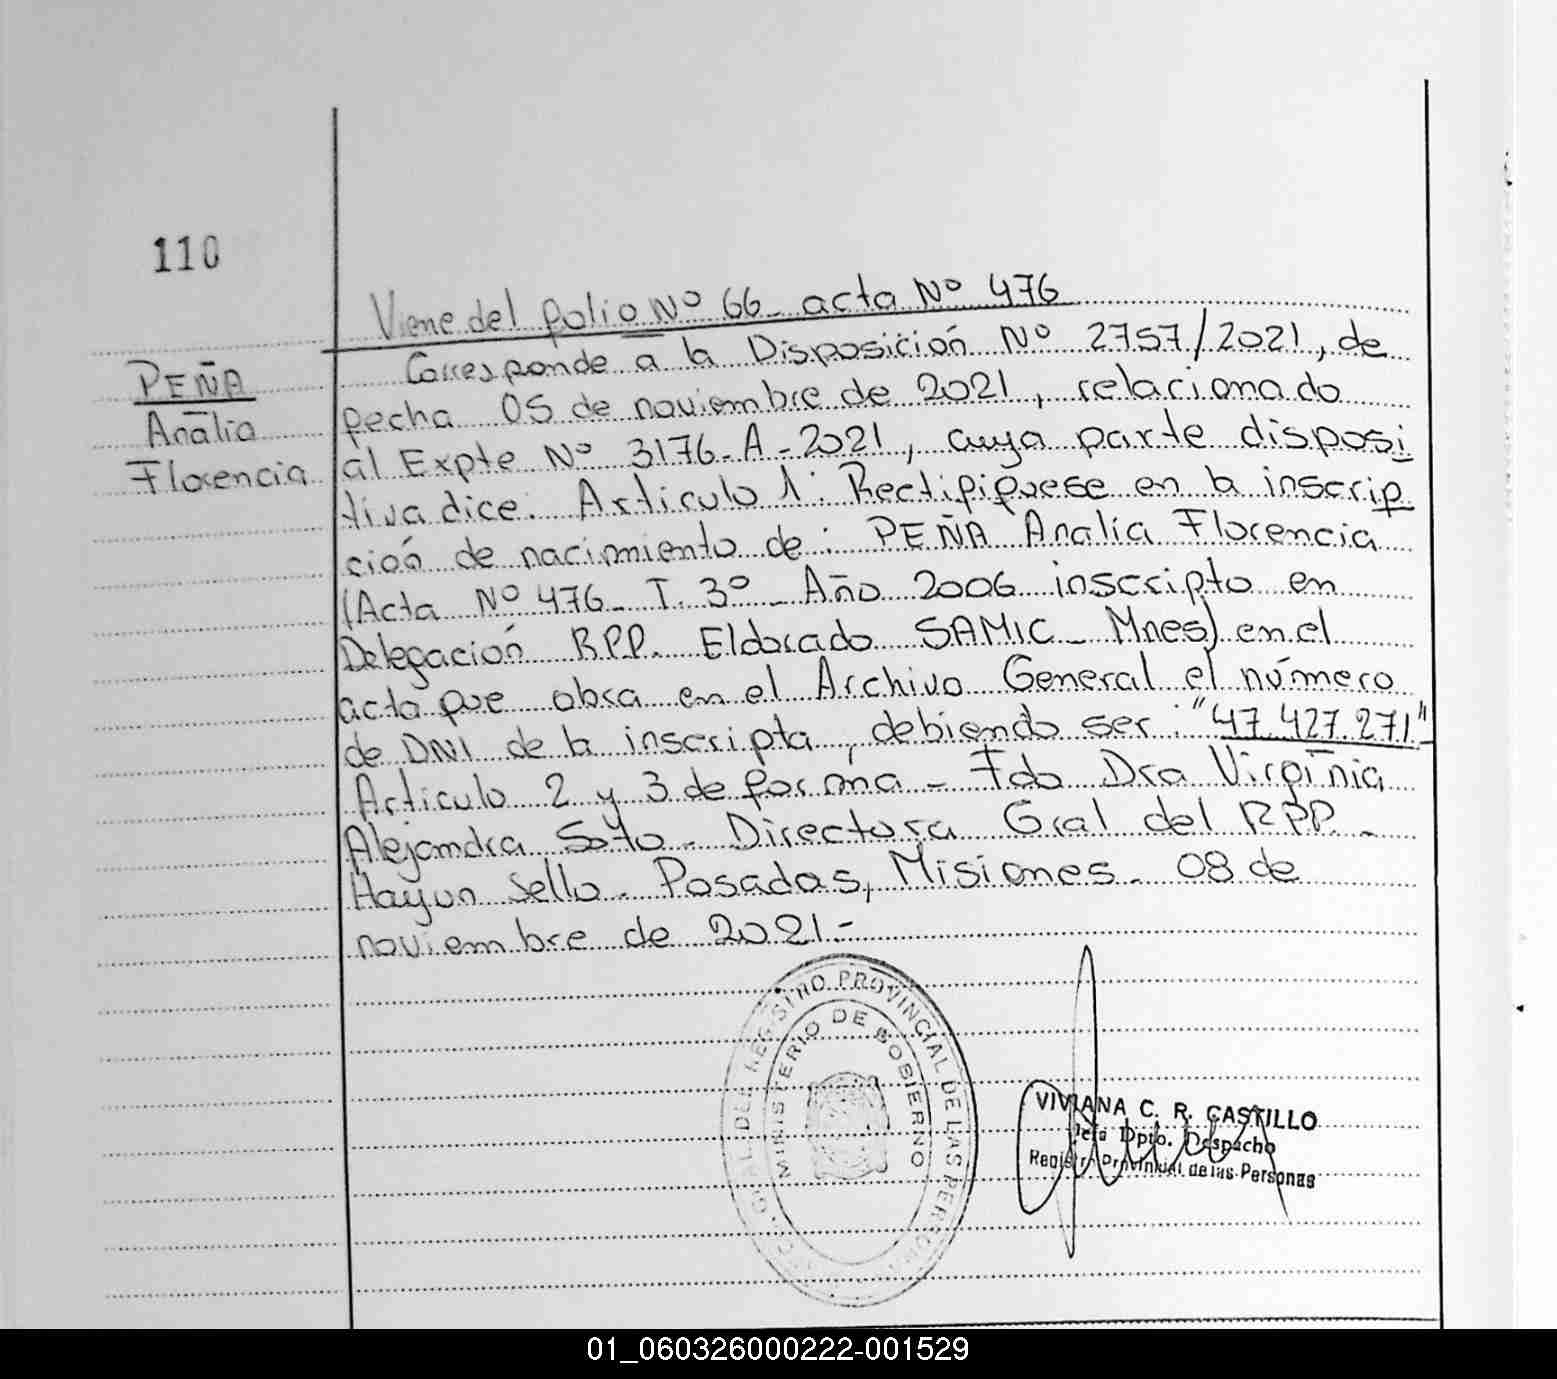 110
Viene del folio Nº 66 - acta Nº 476
PEÑA
Analia
Florencia
Corresponde a la Disposición Nº 2757/2021, de
fecha 05 de noviembre de 2021, relacionado
al Expte Nº 3176-A-2021, cuya parte disposi
tiva dice: Articulo 1: Rectifiquese en la inscrip
ción de nacimiento de: PEÑA Analia Florencia
(Acta Nº 476 - T. 3º - Año 2006 inscripto en
Delegación RPP. Eldorado SAMIC - Mnes) en el
acta que obra en el Archivo General el número
de DNI de la inscripta, debiendo ser: "47.427.271"
Articulo 2 y 3 de forma - Fdo Dra Virginia
Alejandra Soto - Directora Gral del RPP. -
Hay un sello. Posadas, Misiones - 08 de
noviembre de 2021.-
GRAL. DEL REGISTRO PROVINCIAL DE LAS PERSONAS
MINISTERIO DE GOBIERNO
VIVIANA C. R. CASTILLO
Jefa Dpto. Despacho
Registro Provincial de las Personas
01_060326000222-001529